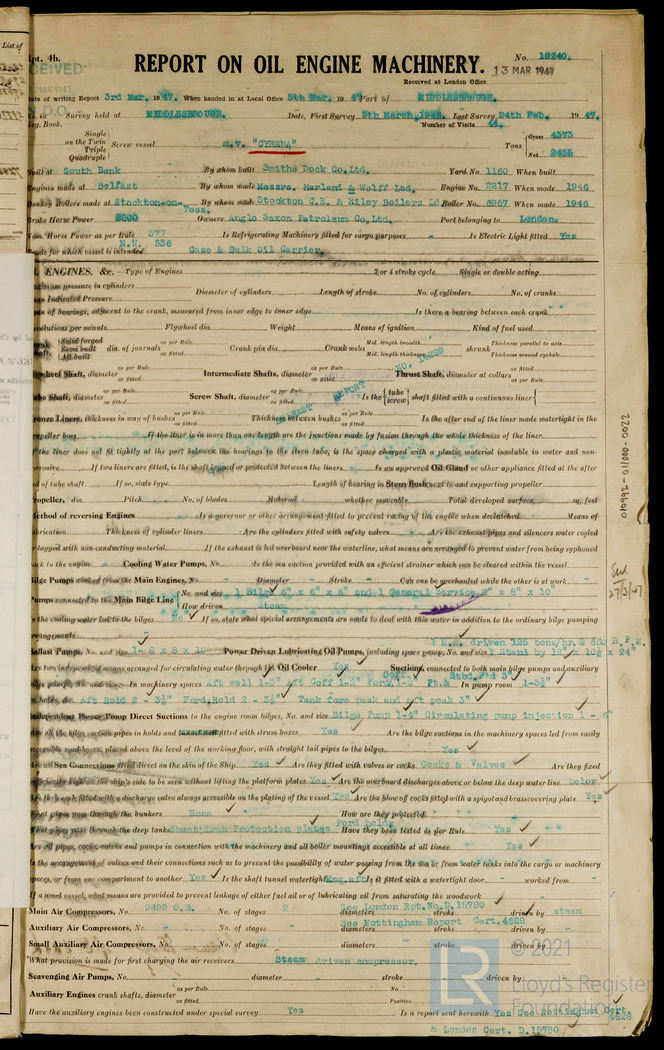 List of
Rpt. 4b.
RECEIVED
MAR 1947
D.O.
REPORT ON OIL ENGINE MACHINERY.
No. 18240.
13 MAR 1947
Received at London Office
Date of writing Report 3rd Mar. 1947. When handed in at Local Office 5th Mar. 1947 Port of MIDDLESBROUGH.
No. in Survey held at MIDDLESBROUGH. Date, First Survey 5th March, 1946. Last Survey 24th Feb. 1947.
Reg. Book. Number of Visits 44.
Single
on the Twin
Triple
Quadruple
Screw vessel m.v. "CYRENA" Tons Gross 4373
Net 2455
Built at South Bank By whom built Smiths Dock Co. Ltd. Yard No. 1160 When built
Engines made at Belfast By whom made Messrs. Harland & Wolff Ltd. Engine No. 2217 When made 1946
Donkey Boilers made at Stockton-on-Tees. By whom made Stockton C.E. & Riley Boilers Ld. Boiler No. 6267 When made 1946
Brake Horse Power Owners Anglo Saxon Petroleum Co. Ltd. Port belonging to London.
Nom. Horse Power as per Rule 377 Is Refrigerating Machinery fitted for cargo purposes - Is Electric Light fitted Yes
M.N. 536
Trade for which vessel is intended Case & Bulk Oil Carrier.
OIL ENGINES, &c.—Type of Engines 2 or 4 stroke cycle Single or double acting
Maximum pressure in cylinders Diameter of cylinders Length of stroke No. of cylinders No. of cranks
Mean Indicated Pressure
Span of bearings, adjacent to the crank, measured from inner edge to inner edge Is there a bearing between each crank
Revolutions per minute Flywheel dia. Weight Means of ignition Kind of fuel used
Crank Shaft, Solid forged Semi built All built dia. of journals as per Rule as fitted Crank pin dia. Crank webs Mid. length breadth Mid. length thickness shrunk Thickness parallel to axis Thickness around eyehole
Flywheel Shaft, diameter as per Rule as fitted Intermediate Shafts, diameter as per Rule as fitted Thrust Shaft, diameter at collars as per Rule as fitted
Tube Shaft, diameter as per Rule as fitted Screw Shaft, diameter as per Rule as fitted Is the tube screw shaft fitted with a continuous liner
BELFAST REPORT
Bronze Liners, thickness in way of bushes as per Rule as fitted Thickness between bushes as per Rule as fitted Is the after end of the liner made watertight in the
propeller boss If the liner is in more than one length are the junctions made by fusion through the whole thickness of the liner
If the liner does not fit tightly at the part between the bearings in the stern tube, is the space charged with a plastic material insoluble in water and non-
corrosive If two liners are fitted, is the shaft lapped or protected between the liners Is an approved Oil Gland or other appliance fitted at the after
end of tube shaft If so, state type Length of bearing in Stern Bush next to and supporting propeller
Propeller, dia. Pitch No. of blades Material whether moveable Total developed surface sq. feet
Method of reversing Engines Is a governor or other arrangement fitted to prevent racing of the engine when declutched Means of
lubrication Thickness of cylinder liners Are the cylinders fitted with safety valves Are the exhaust pipes and silencers water cooled
or lagged with non-conducting material If the exhaust is led overboard near the waterline, what means are arranged to prevent water from being syphoned
back to the engine Cooling Water Pumps, No. Is the sea suction provided with an efficient strainer which can be cleared within the vessel
Bilge Pumps worked from the Main Engines, No. - Diameter - Stroke - Can one be overhauled while the other is at work -
Pumps connected to the Main Bilge Line No. and size 1 Bilge 6" x 6" x 6" and 1 General Service 8" x 8" x 10"
How driven Steam
Is the cooling water led to the bilges No If so, state what special arrangements are made to deal with this water in addition to the ordinary bilge pumping
arrangements -
Ballast Pumps, No. and size 1- 8 x 8 x 10 Power Driven Lubricating Oil Pumps, including spare pump, No. and size 1 M.E. driven 125 tons/hr. @ 338 R.P.M. 1 Stand by 12" x 10½ x 24"
Are two independent means arranged for circulating water through the Oil Cooler Yes Suctions, connected to both main bilge pumps and auxiliary
bilge pumps, No. and size:—In machinery spaces Aft well 1-3" Aft Coff 1-2½" Ford. 1-2" Pt. & Stbd. Ftd 3" In pump room 1-3½"
In holds, &c. Aft Hold 2 - 3½" Ford. Hold 2 - 3½" Tank fore peak and aft peak 3"
Independent Power Pump Direct Suctions to the engine room bilges, No. and size Bilge Pump 1-4" Circulating pump injection 1 - 6"
Are all the bilge suction pipes in holds and tunnel well fitted with strum-boxes Yes Are the bilge suctions in the machinery spaces led from easily
accessible mud boxes, placed above the level of the working floor, with straight tail pipes to the bilges Yes
Are all Sea Connections fitted direct on the skin of the Ship Yes Are they fitted with valves or cocks Cocks & Valves Are they fixed
sufficiently high on the ship's side to be seen without lifting the platform plates Yes Are the overboard discharges above or below the deep water line below
Are they each fitted with a discharge valve always accessible on the plating of the vessel Yes Are the blow off cocks fitted with a spigot and brass covering plate Yes
What pipes pass through the bunkers None How are they protected
What pipes pass through the deep tanks Ford hold Sheet Iron Protection plates Have they been tested as per Rule Yes
Are all pipes, cocks, valves and pumps in connection with the machinery and all boiler mountings accessible at all times Yes
Is the arrangement of valves and their connections such as to prevent the possibility of water passing from the sea or from water tanks into the cargo or machinery
spaces, or from one compartment to another Yes Is the shaft tunnel watertight Eng. aft Is it fitted with a watertight door - worked from -
If a wood vessel, what means are provided to prevent leakage of either fuel oil or of lubricating oil from saturating the woodwork
See London Rpt. No. D.15780
Main Air Compressors, No. No. of stages 2 diameters stroke driven by steam
See Nottingham Report Cert. 4628
Auxiliary Air Compressors, No. - No. of stages - diameters stroke driven by -
Small Auxiliary Air Compressors, No. No. of stages diameters stroke driven by
What provision is made for first charging the air receivers Steam driven compressor.
Scavenging Air Pumps, No. diameter stroke driven by
Auxiliary Engines crank shafts, diameter as per Rule as fitted No. Position
Have the auxiliary engines been constructed under special survey Yes Is a report sent herewith Yes See Nottingham Cert. 4628
& London Cert. D.15780
010992-011000-0202
27/3/47
LR
© 2021
Lloyd's Register
Foundation